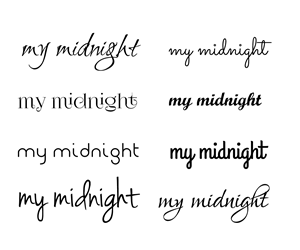 my midnight my midnight
my midnight my midnight
my midnight my midnight
my midnight my midnight